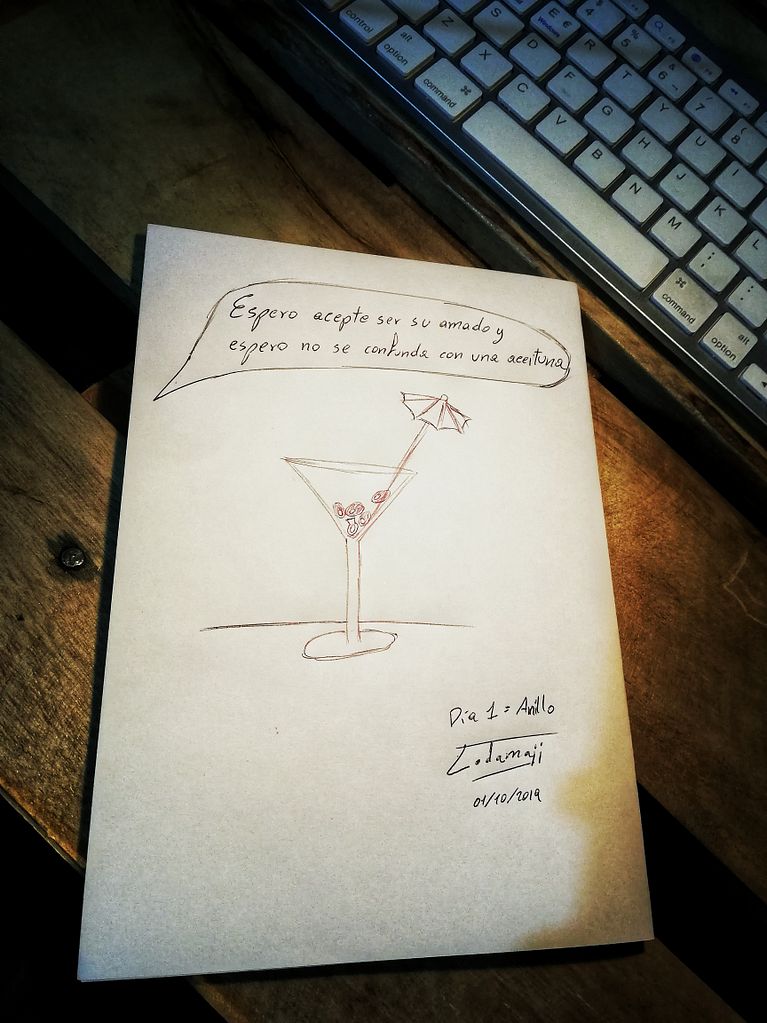 control
alt
option
⌘
command
Z
X
C
V
B
N
M
S
D
F
G
H
J
K
L
E €
Windows
R
T
Y
U
I
4
5
%
6
7
8
;
:
⌘
command
alt
option
Espero acepte ser su amado y
espero no se confunda con una aceituna
Día 1 = Anillo
Lodamaji
01/10/2019